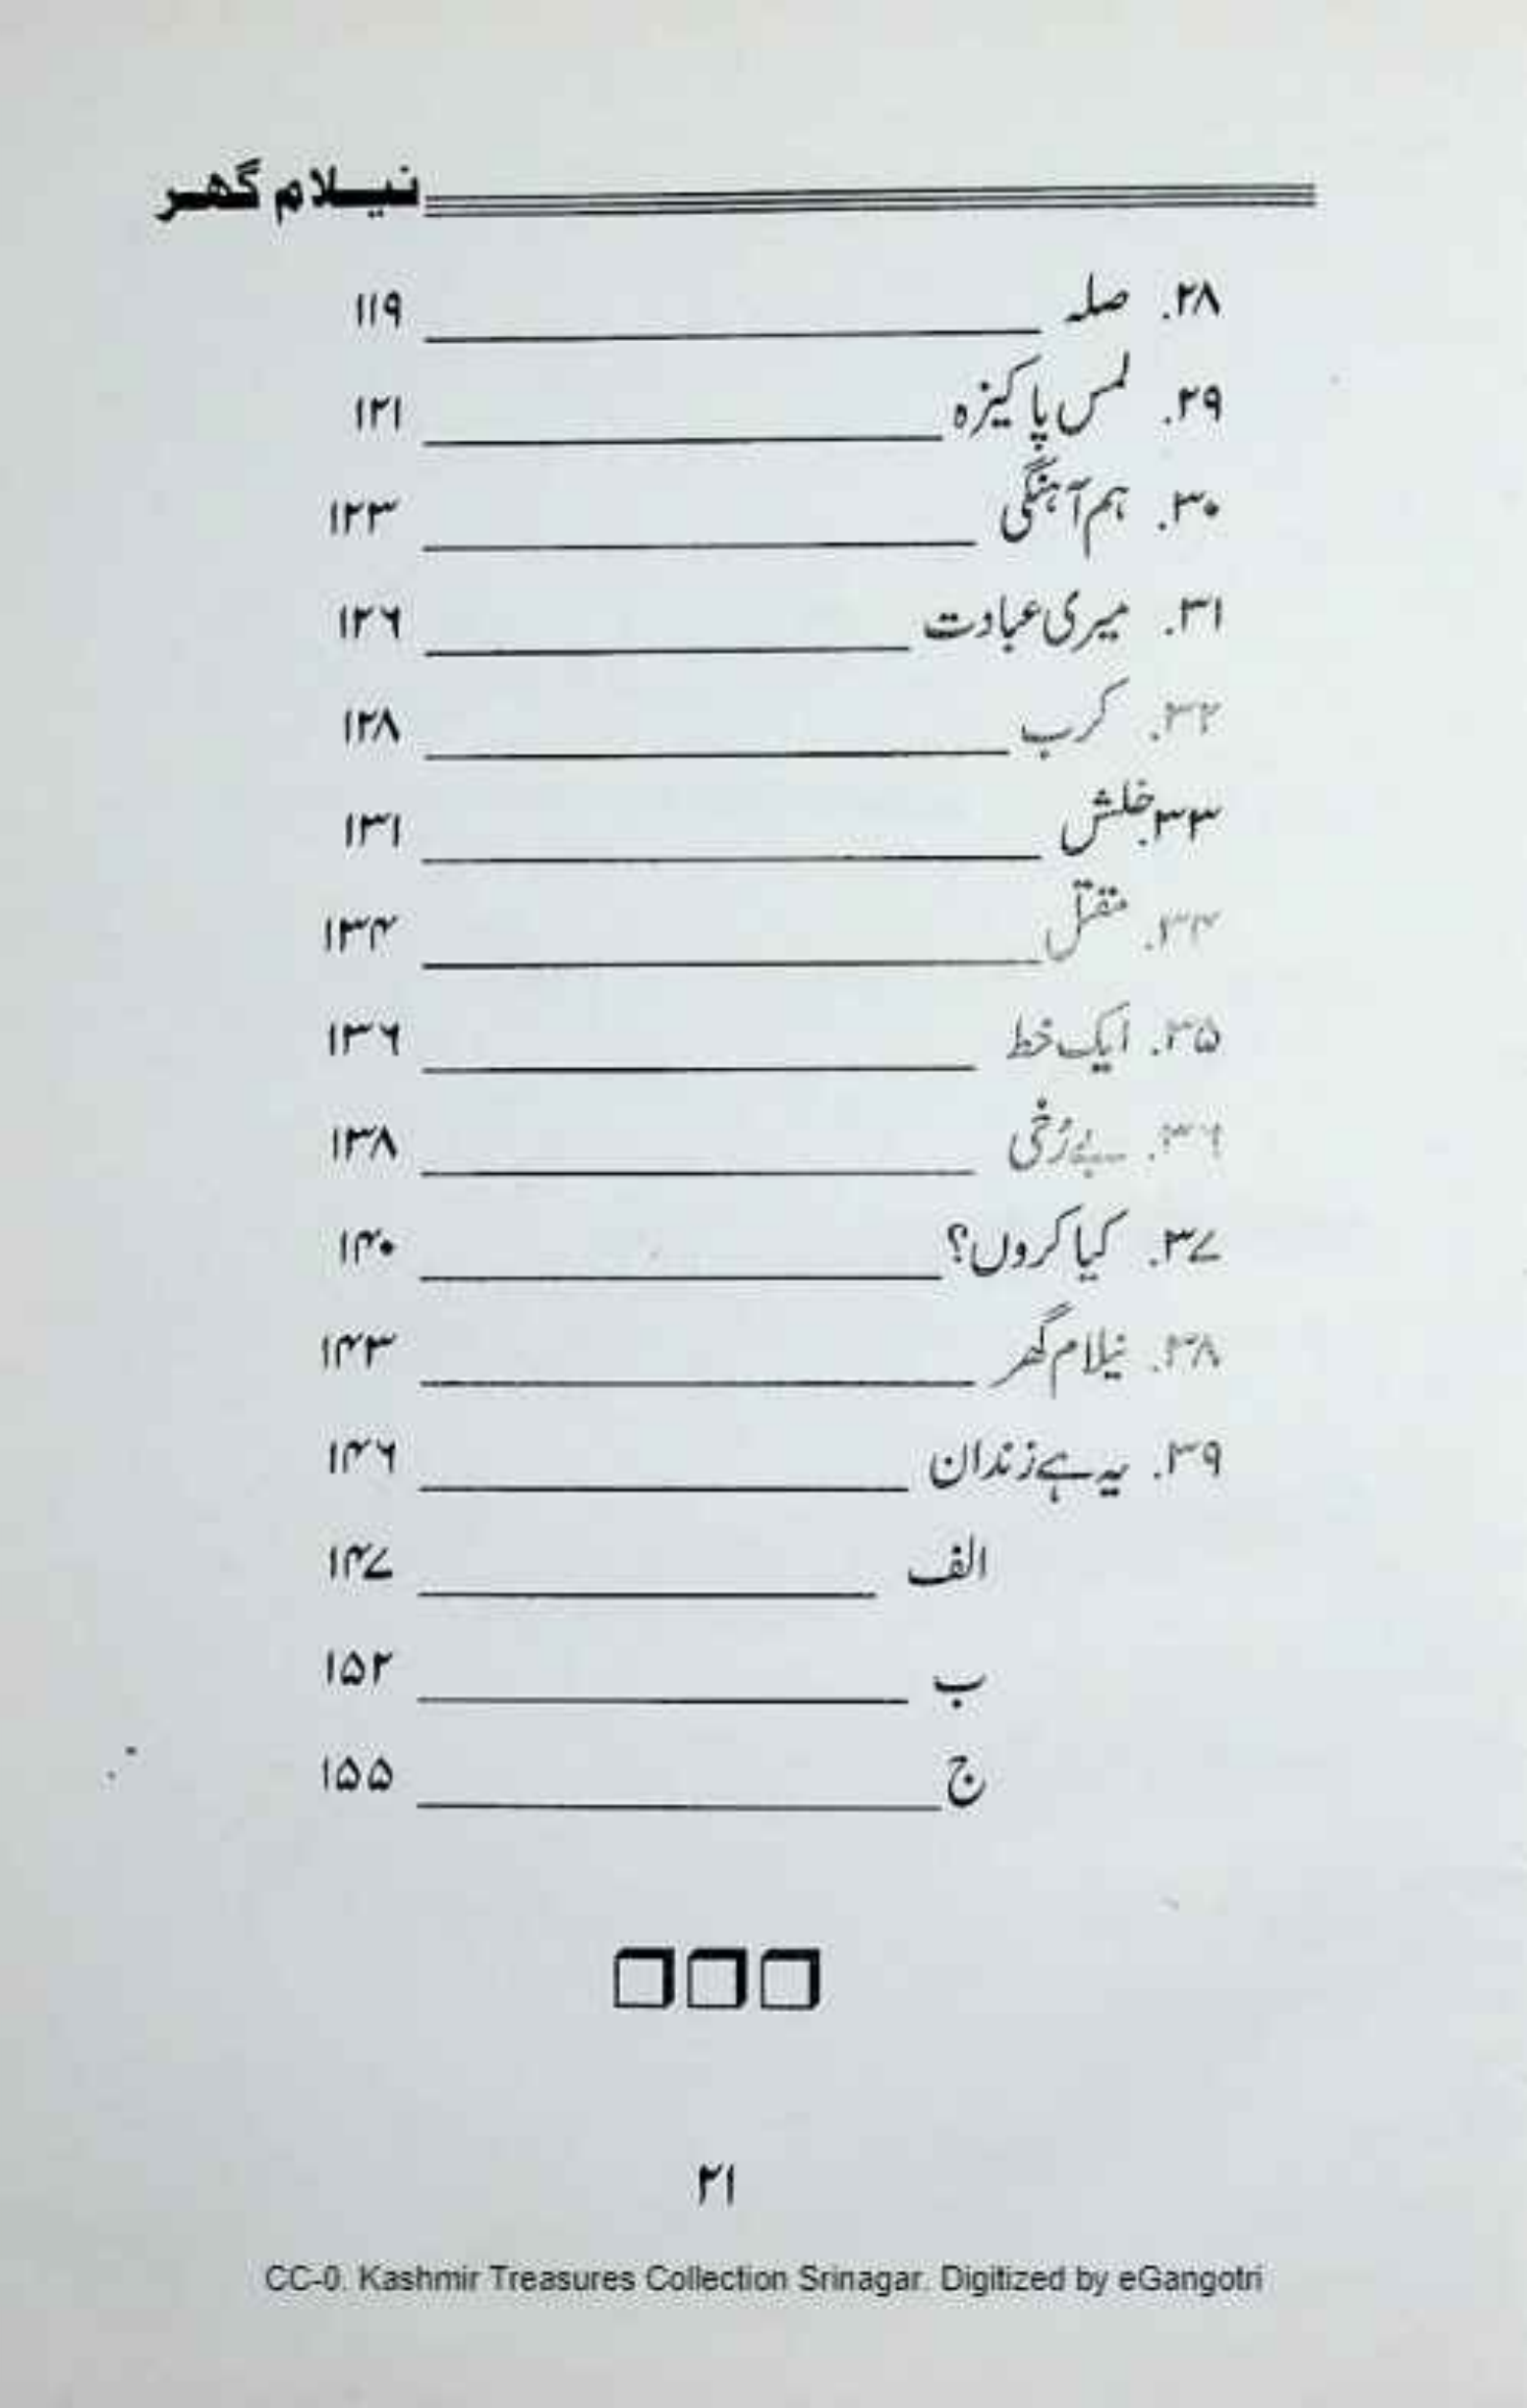 نیلام گھر
۲۸. صلہ ۱۱۹
۲۹. لمس پاکیزہ ۱۲۱
۳۰. ہم آہنگی ۱۲۳
۳۱. میری عبادت ۱۲۶
۳۲. کرب ۱۲۸
۳۳. خلش ۱۳۱
۳۴. مقتل ۱۳۴
۳۵. ایک خط ۱۳۶
۳۶. بے رُخی ۱۳۸
۳۷. کیا کروں؟ ۱۴۰
۳۸. نیلام گھر ۱۴۳
۳۹. یہ ہے زندان ۱۴۶
الف ۱۴۷
ب ۱۵۲
ج ۱۵۵
۲۱
CC-0. Kashmir Treasures Collection Srinagar. Digitized by eGangotri